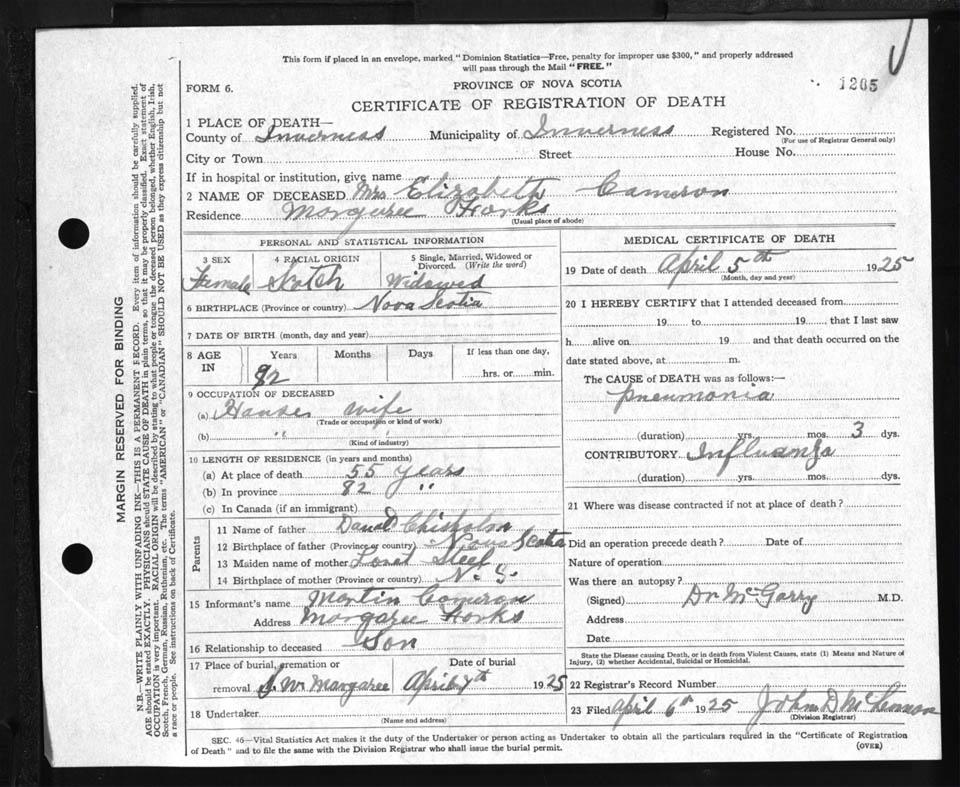 This form if placed in an envelope, marked "Dominion Statistics—Free, penalty for improper use $300," and properly addressed
will pass through the Mail "FREE."
FORM 6.
PROVINCE OF NOVA SCOTIA
1205
CERTIFICATE OF REGISTRATION OF DEATH
1 PLACE OF DEATH—
County of Inverness Municipality of Inverness Registered No.
(For use of Registrar General only)
City or Town Street House No.
If in hospital or institution, give name
2 NAME OF DECEASED Mrs Elizabeth Cameron
Residence Margaree Forks
(Usual place of abode)
PERSONAL AND STATISTICAL INFORMATION
3 SEX 4 RACIAL ORIGIN 5 Single, Married, Widowed or Divorced. (Write the word)
Female Scotch Widowed
6 BIRTHPLACE (Province or country) Nova Scotia
7 DATE OF BIRTH (month, day and year)
8 AGE IN Years Months Days If less than one day,
82 hrs. or min.
9 OCCUPATION OF DECEASED
(a) House wife
(Trade or occupation or kind of work)
(b) " "
(Kind of industry)
10 LENGTH OF RESIDENCE (in years and months)
(a) At place of death 55 years
(b) In province 82 "
(c) In Canada (if an immigrant)
Parents
11 Name of father Chisholm
12 Birthplace of father (Province or country) Nova Scotia
13 Maiden name of mother
14 Birthplace of mother (Province or country) N. S.
15 Informant's name Martin Cameron
Address Margaree Forks
16 Relationship to deceased Son
17 Place of burial, cremation or removal Date of burial
S. W. Margaree April 7th 1925
18 Undertaker
(Name and address)
MEDICAL CERTIFICATE OF DEATH
19 Date of death April 5th 1925
(Month, day and year)
20 I HEREBY CERTIFY that I attended deceased from
19 to 19 that I last saw
h alive on 19 and that death occurred on the
date stated above, at m.
The CAUSE of DEATH was as follows:—
pneumonia
(duration) yrs. mos. 3 dys.
CONTRIBUTORY Influenza
(duration) yrs. mos. dys.
21 Where was disease contracted if not at place of death?
Did an operation precede death? Date of
Nature of operation
Was there an autopsy?
(Signed) Dr McGarry M.D.
Address
Date
State the Disease causing Death, or in death from Violent Causes, state (1) Means and Nature of
Injury, (2) whether Accidental, Suicidal or Homicidal.
22 Registrar's Record Number
23 Filed April 6th 1925 John D McLennan
(Division Registrar)
SEC. 46—Vital Statistics Act makes it the duty of the Undertaker or person acting as Undertaker to obtain all the particulars required in the "Certificate of Registration
of Death" and to file the same with the Division Registrar who shall issue the burial permit.
(OVER)
MARGIN RESERVED FOR BINDING
N.B.—WRITE PLAINLY WITH UNFADING INK—THIS IS A PERMANENT RECORD. Every item of information should be carefully supplied.
AGE should be stated EXACTLY. PHYSICIANS should STATE CAUSE OF DEATH in plain terms, so that it may be properly classified. Exact statement of
OCCUPATION is very important. RACIAL ORIGIN will be described by stating to what people or tongue the deceased person belonged, whether English, Irish,
Scotch, French, German, Russian, Ruthenian, etc. The terms "AMERICAN" or "CANADIAN" SHOULD NOT BE USED as they express citizenship but not
a race or people. See instructions on back of Certificate.